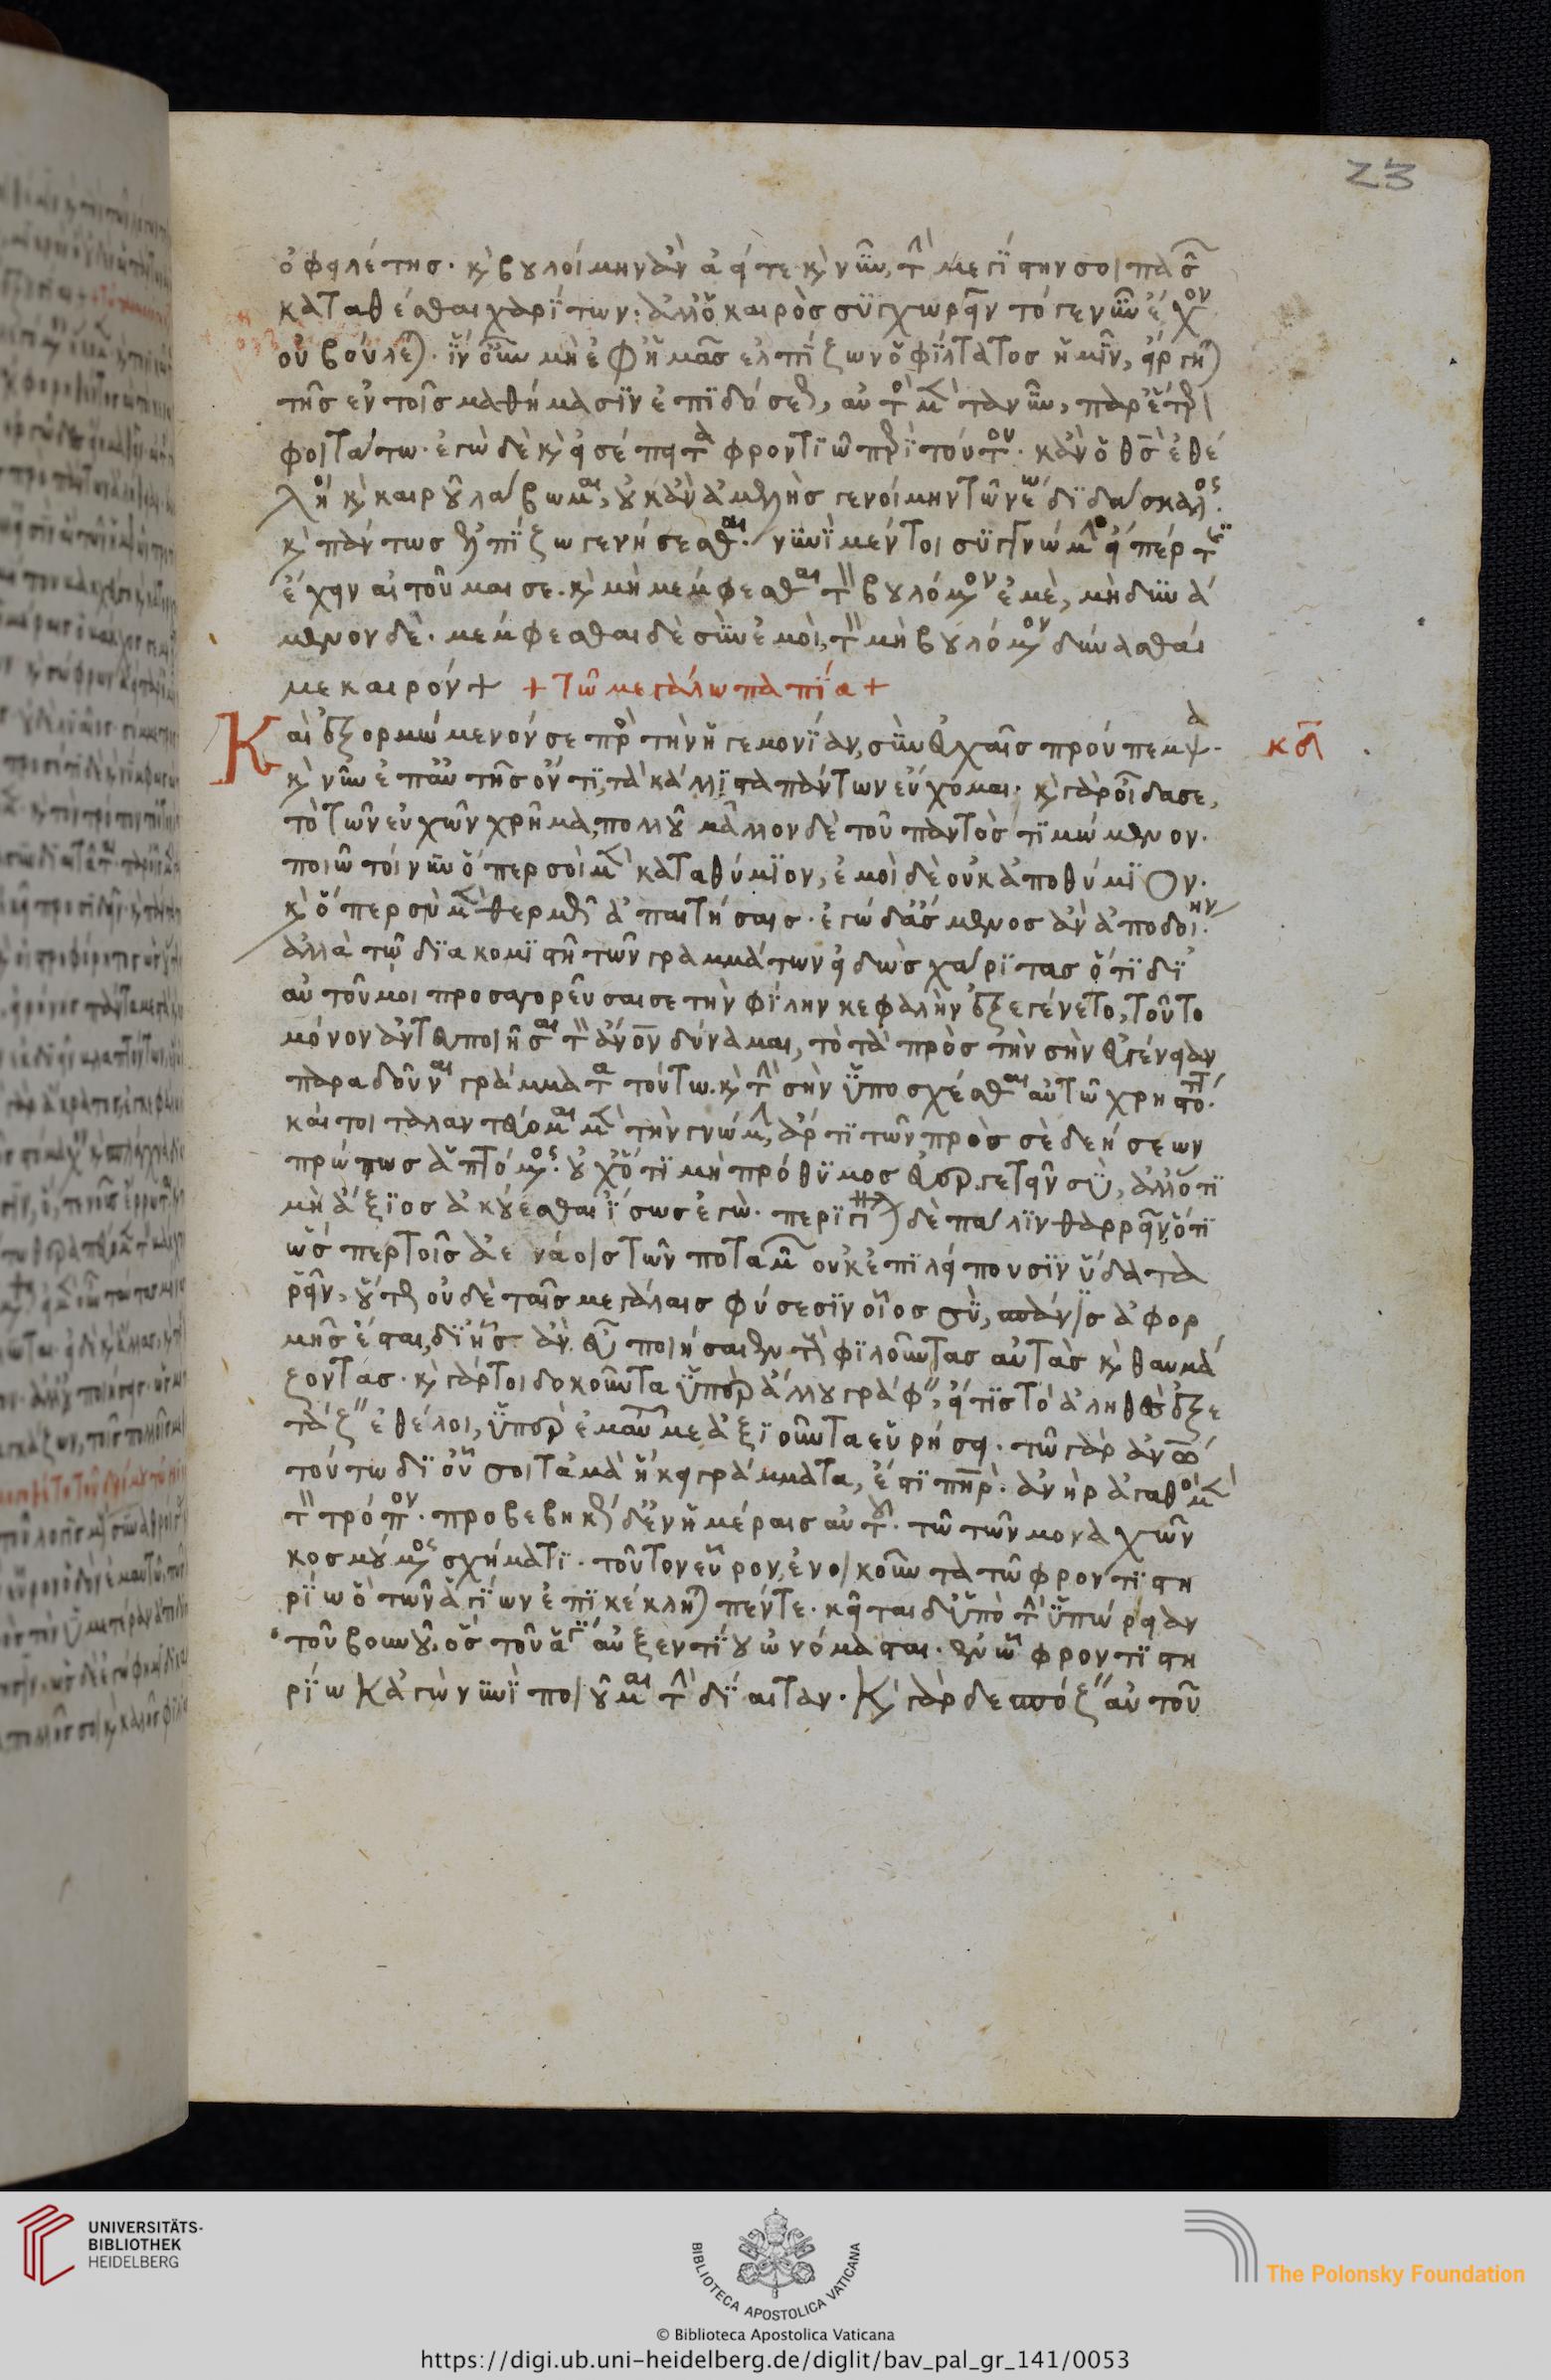 23
ὀφειλέτης. καὶ βουλοίμην ἂν ἀεί τε καὶ νῦν, τὴν μεγίστην σοι πασῶν
καταθέσθαι χαρίτων. ἀλλ' ὁ καιρὸς συγχωρεῖν τό γε νῦν ἔχον
οὐ βούλεται. ἵν' οὖν μὴ ἐφ' ἡμᾶς ἐλπίζων ὁ φίλτατος ἡμῖν, εἴργηται
τῆς ἐν τοῖς μαθήμασιν ἐπιδόσεως, αὐτὸς μὲν τανῦν, παρ' ἕτερον
φοιτάτω. ἐγὼ δὲ καὶ εἰσέπειτα φροντιῶ περὶ τούτου. κἂν ὁ θεὸς ἐθέ
λῃ καὶ καιροῦ λάβωμαι, οὐκ ἂν ἀμελὴς γενοίμην τῶν νέων διδάσκαλος.
καὶ πάντως ἐλπίζω γενήσεσθαι. νυνὶ μέντοι συγγνώμην εἴπερ τις
ἔχειν αἰτοῦμαί σε. καὶ μὴ μέμφεσθαι τὸν βουλόμενον ἐμὲ, μὴ δυνά
μενον δέ. μέμφεσθαι δὲ σὺν ἐμοὶ, τὸν μὴ βουλόμενον δύνασθαί
με καιρόν + + Τῷ μεγάλῳ παπίᾳ +
Καὶ ἐξορμώμενόν σε πρὸς τὴν ἡγεμονίαν, σὺν εὐχαῖς προύπεμψα. κδ
καὶ νῦν ἐπ' αὐτῆς ὄντι, τὰ κάλλιστα πάντων εὔχομαι. καὶ γὰρ οἶδά σε,
τὸ τῶν εὐχῶν χρῆμα, πολλοῦ μᾶλλον δὲ τοῦ παντὸς τιμώμενον.
ποιῶ τοίνυν ὅπερ σοὶ μὲν καταθύμιον, ἐμοὶ δὲ οὐκ ἀποθύμιον.
καὶ ὅπερ σὺ μὲν θερμῶς ἀπαιτήσαις. ἐγὼ δ' ἄσμενος ἂν ἀποδοίην.
ἀλλὰ τῷ διακομιστῇ τῶν γραμμάτων εἰδὼς χάριτας ὅτι δι'
αὐτοῦ μοι προσαγορεῦσαί σε τὴν φίλην κεφαλὴν ἐξεγένετο, τοῦτο
μόνον ἀντευποιῆσαι τὸν ἄνθρωπον δύναμαι, τὸ τὰ πρὸς τὴν σὴν εὐγένειαν
παραδοῦναι γράμματα τούτῳ. καὶ τὴν σὴν ὑποσχέσθαι αὐτῷ χρηστότητα.
καίτοι ταλαντεύομαι μὲν τὴν γνώμην, ἄρτι τῶν πρὸς σὲ δεήσεων
πρώτως ἁπτόμενος. οὐχ ὅτι μὴ πρόθυμος εὐεργετεῖν σύ, ἀλλ' ὅτι
μὴ ἄξιος ἀκούεσθαι ἴσως ἐγώ. περιγίνεται δὲ πάλιν θαρρεῖν, ὅτι
ὥσπερ τοῖς ἀενάοις τῶν ποταμῶν οὐκ ἐπιλείπουσιν ὕδατα
ῥεῖν, οὕτως οὐδὲ ταῖς μεγάλαις φύσεσιν οἷος σύ, σπάνις ἀφορ
μῆς ἔσται, δι' ἧς ἂν εὖ ποιήσαιεν τοὺς φιλοῦντας αὐτὰς καὶ θαυμά
ζοντας. καὶ γάρ τοι δοκοῦντα ὑπὲρ ἄλλου γράφειν, εἴ τις τὸ ἀληθὲς ἐξε
τάζειν ἐθέλοι, ὑπὲρ ἐμαυτοῦ με ἀξιοῦντα εὑρήσει. τῷ γὰρ ἀνθρώπῳ
τούτῳ δι' οὗ σοι τἀμὰ ἥκει γράμματα, ἔστι πατήρ. ἀνὴρ ἀγαθὸς μὲν
τὸν τρόπον. προβεβηκὼς δ' ἐν ἡμέραις αὐτοῦ. τῷ τῶν μοναχῶν
κοσμούμενος σχήματι. τοῦτον εὗρον, ἐνοικοῦντα τῷ φροντιστη
ρίῳ ὃ τῶν ἁγίων ἐπικέκληται πέντε. κεῖται δ' ὑπὸ τὴν ὑπώρειαν
τοῦ βουνοῦ, ὃς τοῦ ἁγίου αὐξεντίου ὠνόμασται. ἐν ᾧ φροντιστη
ρίῳ κἀγὼ νυνὶ ποιοῦμαι τὴν δίαιταν. καὶ γὰρ δεσπόζειν αὐτοῦ
UNIVERSITÄTS-
BIBLIOTHEK
HEIDELBERG
BIBLIOTECA APOSTOLICA VATICANA
The Polonsky Foundation
© Biblioteca Apostolica Vaticana
https://digi.ub.uni-heidelberg.de/diglit/bav_pal_gr_141/0053